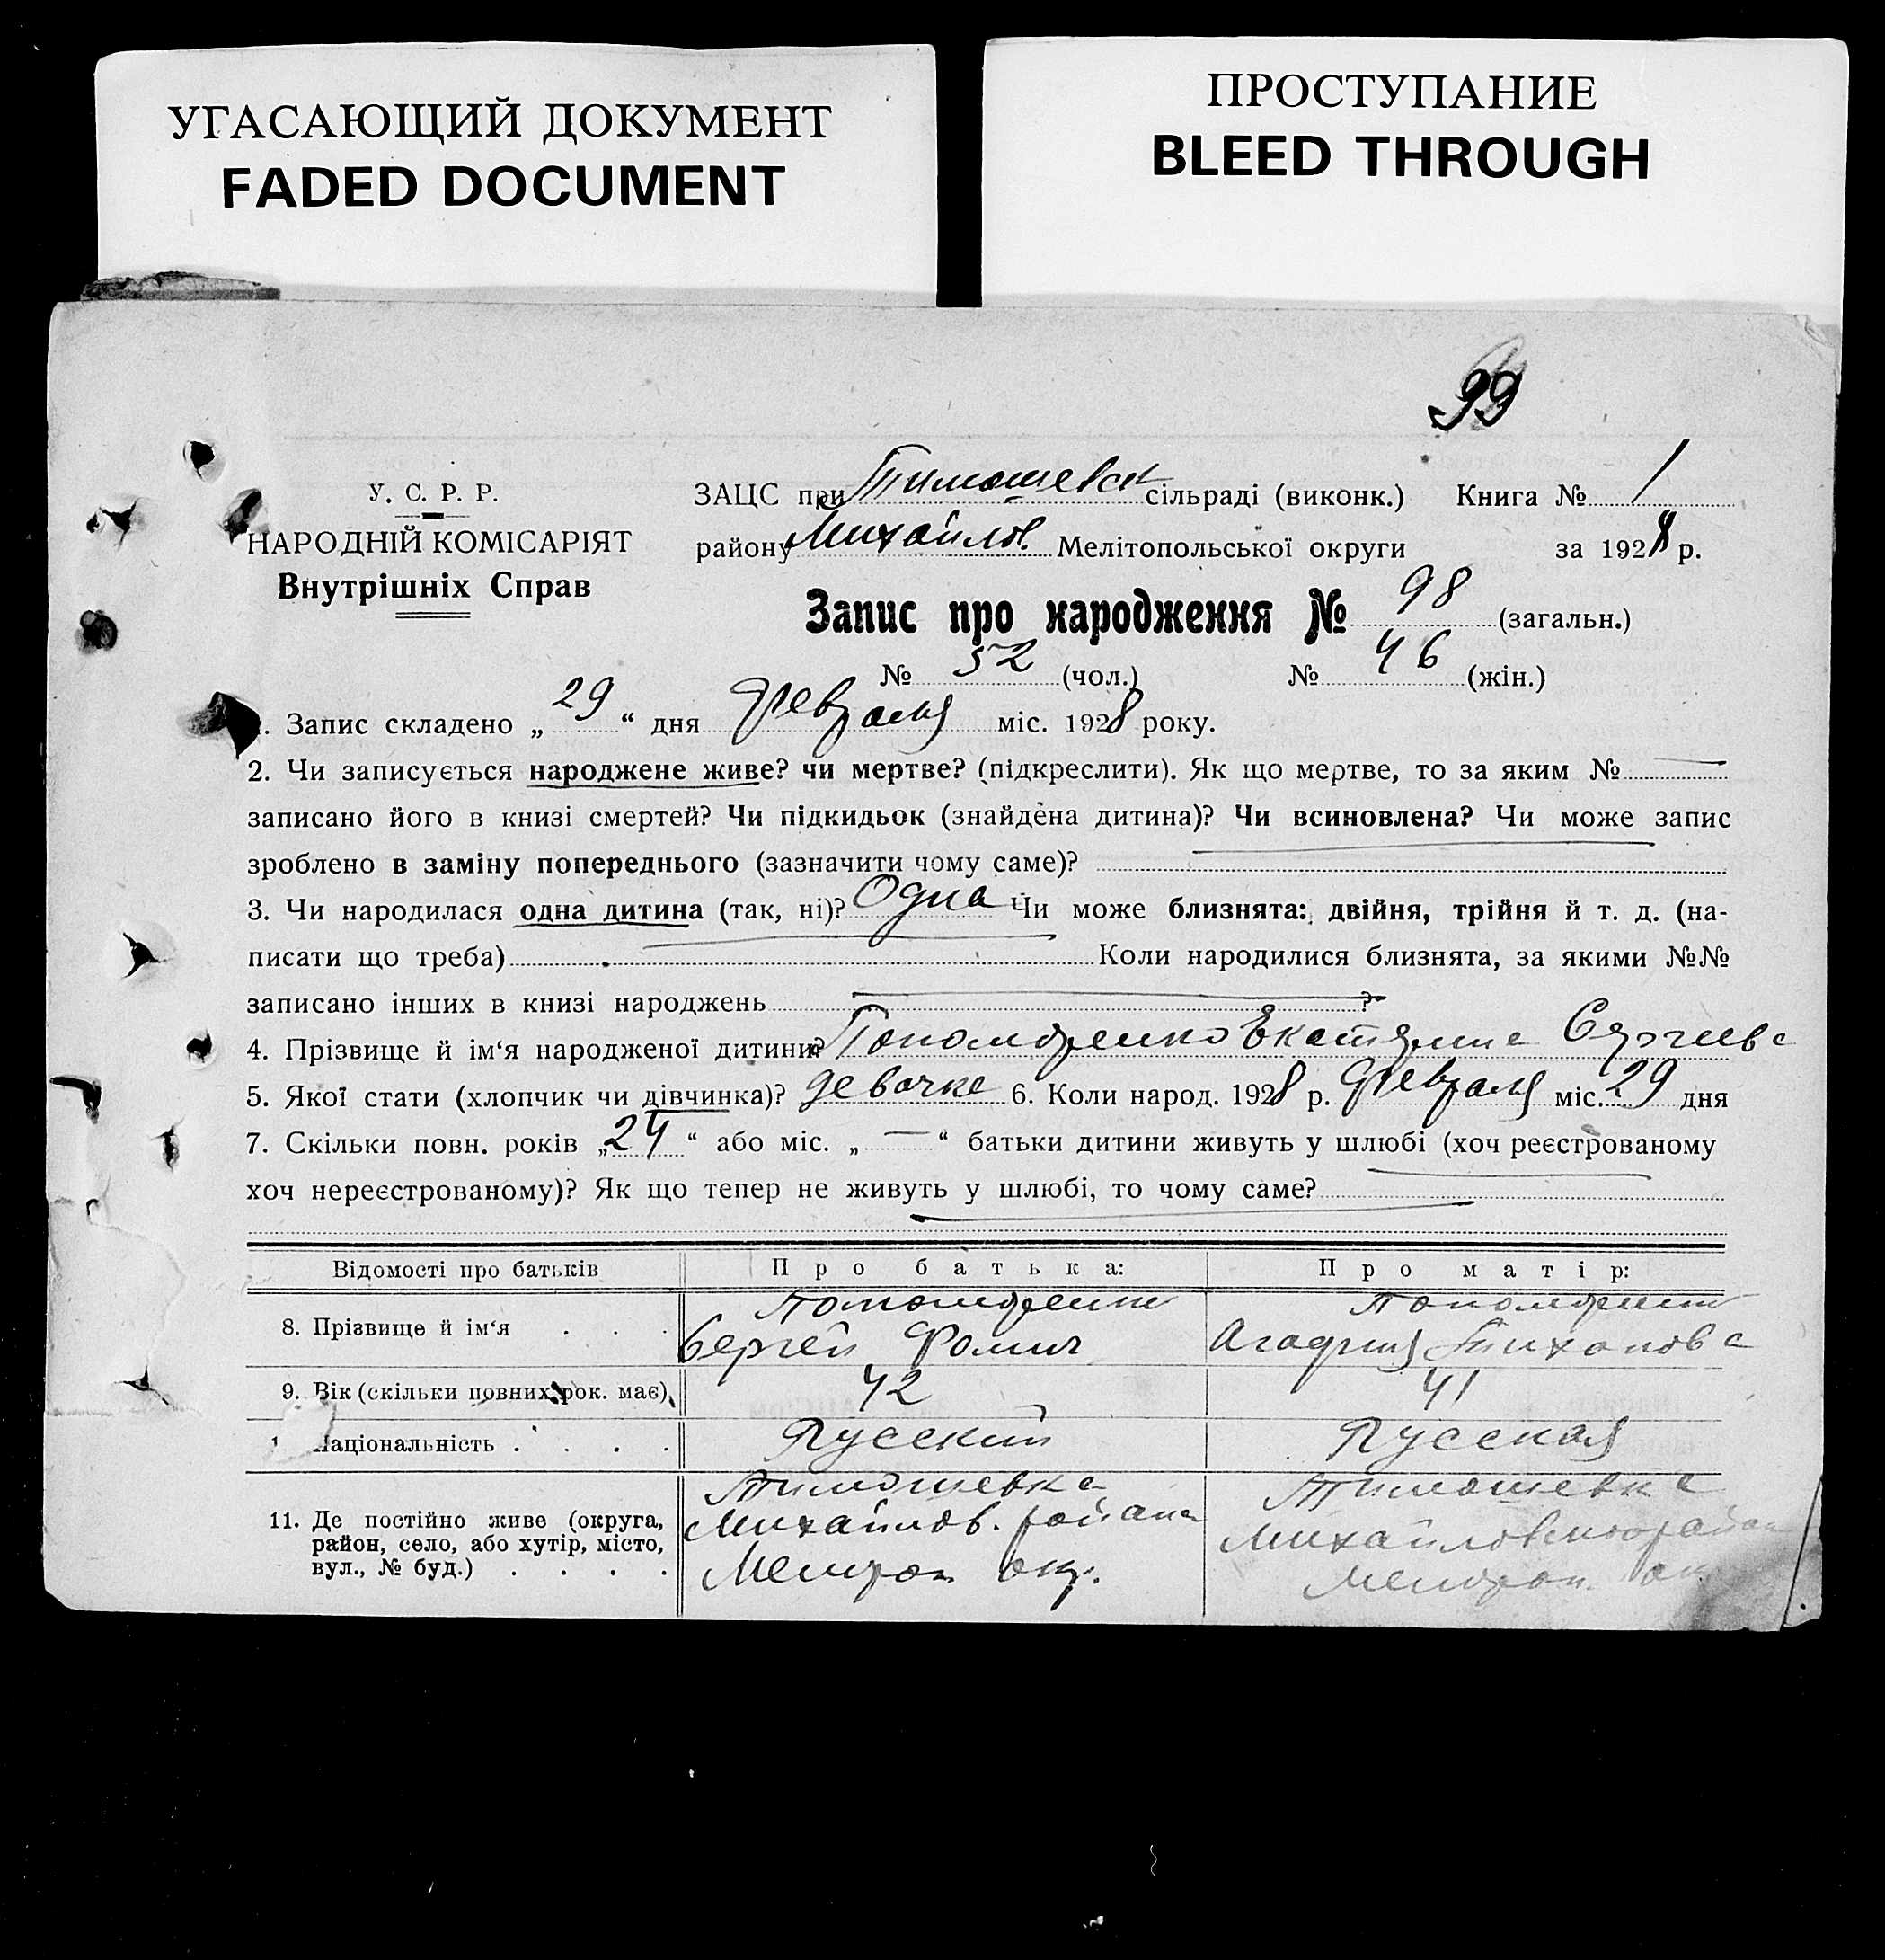 УГАСАЮЩИЙ ДОКУМЕНТ
FADED DOCUMENT
ПРОСТУПАНИЕ
BLEED THROUGH
99
У. С. Р. Р.
НАРОДНІЙ КОМІСАРІЯТ
Внутрішніх Справ
ЗАЦС при Тимошевск сільраді (виконк.) Книга № 1
району Михайлов. Мелітопольської округи за 1928 р.
Запис про народження № 98 (загальн.)
№ 52 (чол.) № 46 (жін.)
1. Запис складено „ 29 “ дня Февраля міс. 1928 року.
2. Чи записується народжене живе? чи мертве? (підкреслити). Як що мертве, то за яким № —
записано його в книзі смертей? Чи підкидьок (знайдена дитина)? Чи всиновлена? Чи може запис
зроблено в заміну попереднього (зазначити чому саме)?
3. Чи народилася одна дитина (так, ні)? Одна Чи може близнята: двійня, трійня й т. д. (на-
писати що треба) Коли народилися близнята, за якими №№
записано інших в книзі народжень ?
4. Прізвище й ім‘я народженої дитини? Екатерина Сергеева
5. Якої стати (хлопчик чи дівчинка)? девочка 6. Коли народ. 1928 р. Февраля міс. 29 дня
7. Скільки повн. років „24“ або міс. „ — “ батьки дитини живуть у шлюбі (хоч реєстрованому
хоч нереєстрованому)? Як що тепер не живуть у шлюбі, то чому саме?
Відомості про батьків Про батька: Про матір:
8. Прізвище й ім‘я . . .
Сергей Фомич Агафия Тихонова
9. Вік (скільки повних рок. має) 42 41
Національність . . . . Русский Русская
11. Де постійно живе (округа,
район, село, або хутір, місто,
вул., № буд.) . . . .
Тимошевка
Михайлов. района
окр.
Тимошевка
Михайловского района